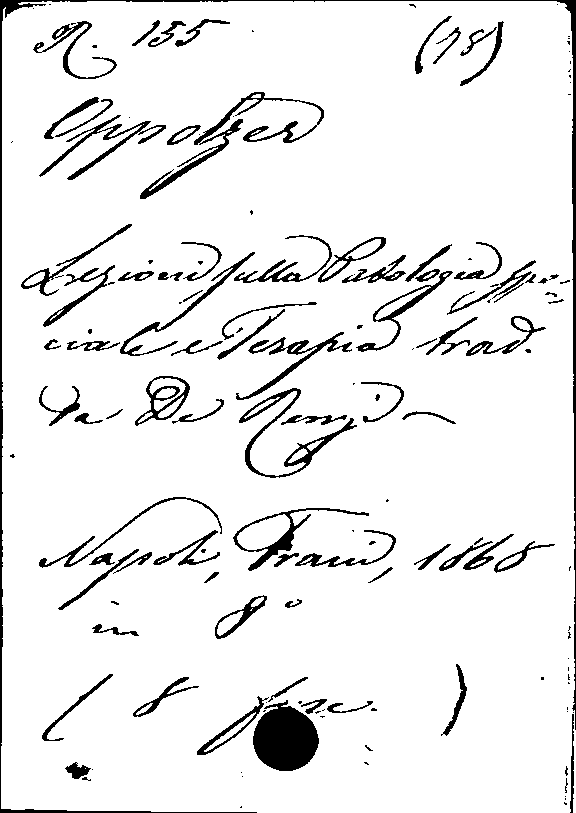 R. 155 (78)
Oppolzer
Lezioni sulla Patologia spe-
ciale e Terapia trad.
da De Renzi
Napoli, 1868
in 8°
( 8 fasc. )